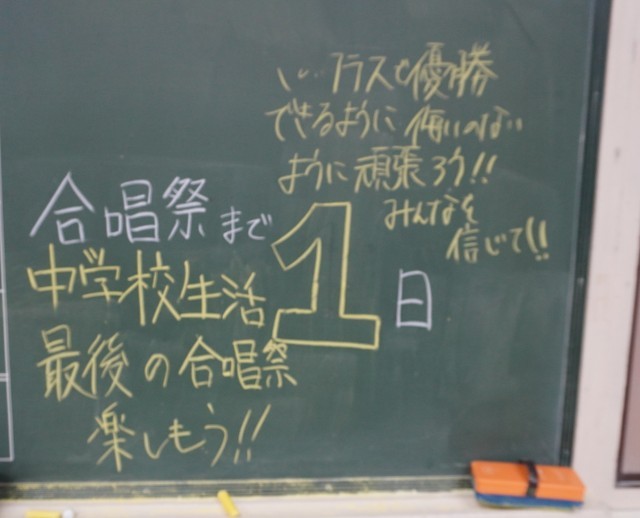 クラスで優勝
できるように悔いのない
ように頑張ろう!!
みんなを
信じて!!
合唱祭まで1日
中学校生活
最後の合唱祭
楽しもう!!